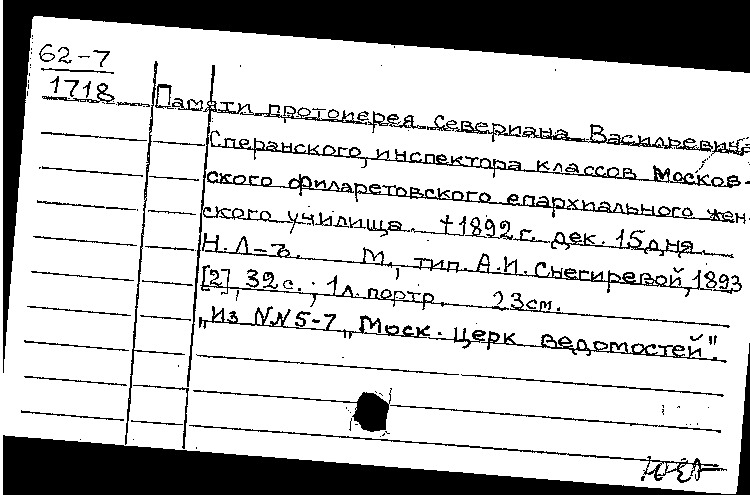 62-7
1718
Памяти протоиерея Севериана Васильевича
Сперанского, инспектора классов Москов-
ского филаретовского епархиального жен-
ского училища. †1892 г. дек. 15 дня.
Н. Л-ъ. М., тип. А.И. Снегиревой, 1893
[2], 32 с.; 1 л. портр. 23 см.
„Из NN 5-7 „Моск. церк. ведомостей".